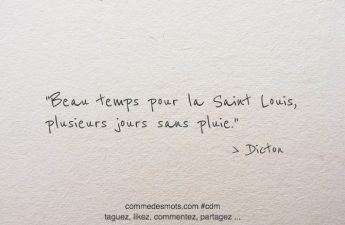 "Beau temps pour la Saint Louis,
plusieurs jours sans pluie."
> Dicton
commedesmots.com #cdm
taguez, likez, commentez, partagez ...